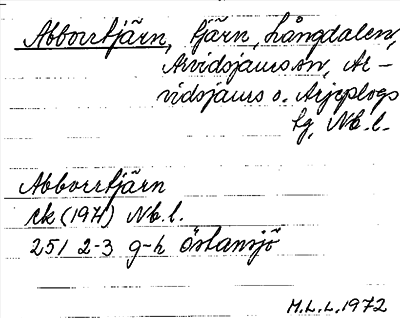 Abborrtjärn, tjärn, Långdalen,
Arvidsjaurs sn, Ar-
vidsjaurs o. Arjeplogs
tg, Nb. l.
Abborrtjärn
ek (1971) Nb. l.
251 2-3 g-h Östansjö
M.L.L. 1972